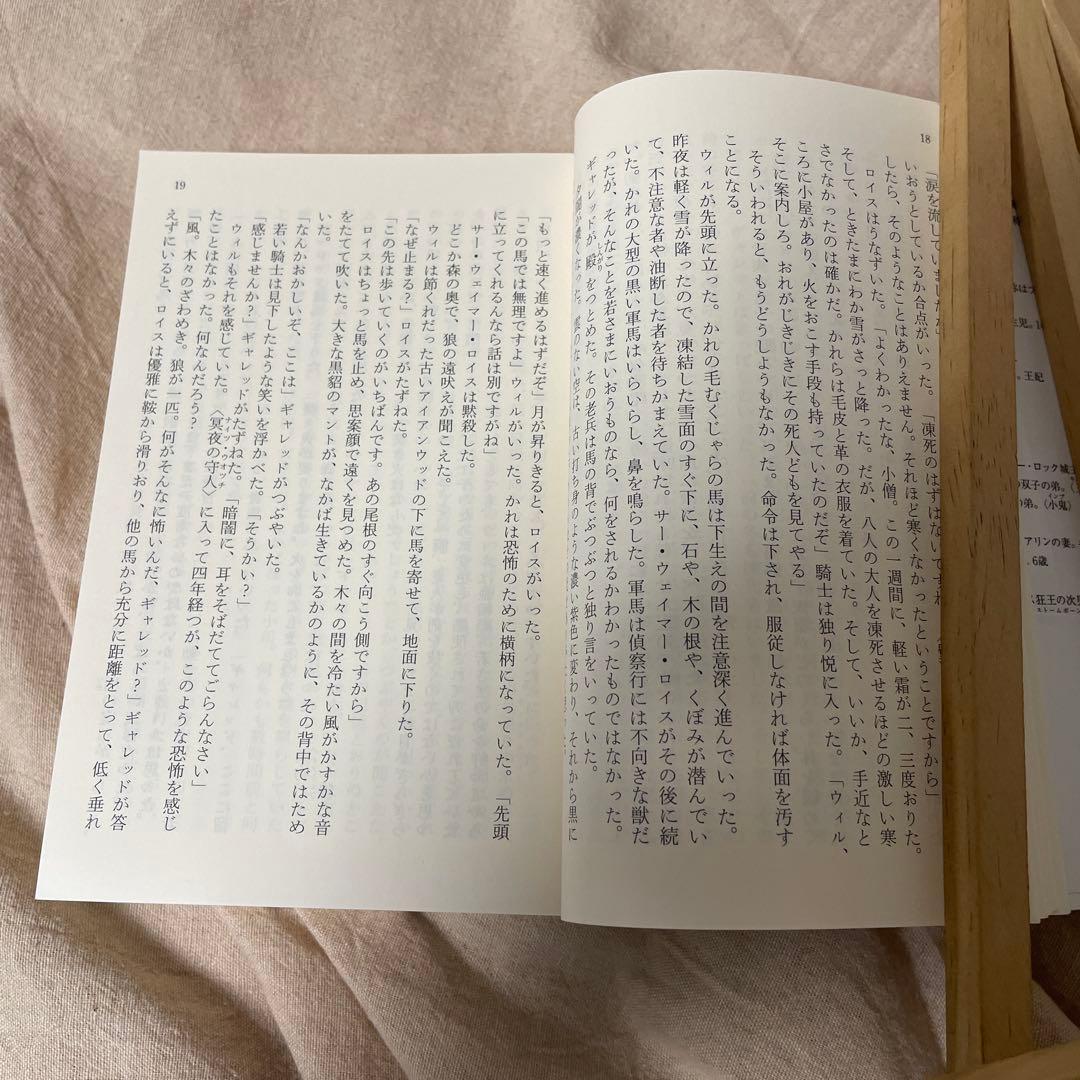 18
「涙を流していましたか
いおうとしているか合点がいった。「凍死のはずはないですね
したら、そのようなことはありえません。それほど寒くなかったということですから」
ロイスはうなずいた。「よくわかったな、小僧。この一週間に、軽い霜が二、三度おりた。
そして、ときたまにわか雪がさっと降った。だが、八人の大人を凍死させるほどの激しい寒
さでなかったのは確かだ。かれらは毛皮と革の衣服を着ていた。そして、いいか、手近なと
ころに小屋があり、火をおこす手段も持っていたのだぞ」騎士は独り悦に入った。「ウィル、
そこに案内しろ。おれがじきじきにその死人どもを見てやる」
そういわれると、もうどうしようもなかった。命令は下され、服従しなければ体面を汚す
ことになる。
ウィルが先頭に立った。かれの毛むくじゃらの馬は下生えの間を注意深く進んでいった。
昨夜は軽く雪が降ったので、凍結した雪面のすぐ下に、石や、木の根や、くぼみが潜んでい
て、不注意な者や油断した者を待ちかまえていた。サー・ウェイマー・ロイスがその後に続
いた。かれの大型の黒い軍馬はいらいらし、鼻を鳴らした。軍馬は偵察行には不向きな獣だ
ったが、そんなことを若さまにいおうものなら、何をされるかわかったものではなかった。
ギャレッドが殿をつとめた。その老兵は馬の背でぶつぶつと独り言をいっていた。
しんがり
夕闇が濃くなった。雲のない空は、古い打ち身のような濃い紫色に変わり、それから黒に
19
「もっと速く進めるはずだぞ」月が昇りきると、ロイスがいった。
「この馬では無理ですよ」ウィルがいった。かれは恐怖のために横柄になっていた。「先頭
に立ってくれるんなら話は別ですがね」
サー・ウェイマー・ロイスは黙殺した。
どこか森の奥で、狼の遠吠えが聞こえた。
ウィルは節くれだった古いアイアンウッドの下に馬を寄せて、地面に下りた。
「なぜ止まる?」ロイスがたずねた。
「この先は歩いていくのがいちばんです。あの尾根のすぐ向こう側ですから」
ロイスはちょっと馬を止め、思案顔で遠くを見つめた。木々の間を冷たい風がかすかな音
をたてて吹いた。大きな黒貂のマントが、なかば生きているかのように、その背中ではため
いた。
「なんかおかしいぞ、ここは」ギャレッドがつぶやいた。
若い騎士は見下したような笑いを浮かべた。「そうかい?」
「感じませんか?」ギャレッドがたずねた。「暗闇に、耳をそばだててごらんなさい」
ウィルもそれを感じていた。〈冥夜の守人〉に入って四年経つが、このような恐怖を感じ
ナイツ・ウォッチ
たことはなかった。何なんだろう?
「風。木々のざわめき。狼が一匹。何がそんなに怖いんだ、ギャレッド?」ギャレッドが答
えずにいると、ロイスは優雅に鞍から滑りおり、他の馬から充分に距離をとって、低く垂れ
王妃
ー・ロック城主
の双子の弟。
の弟。〈小鬼〉
インプ
アリンの妻。
。6歳
狂王の次男
ストームボーン